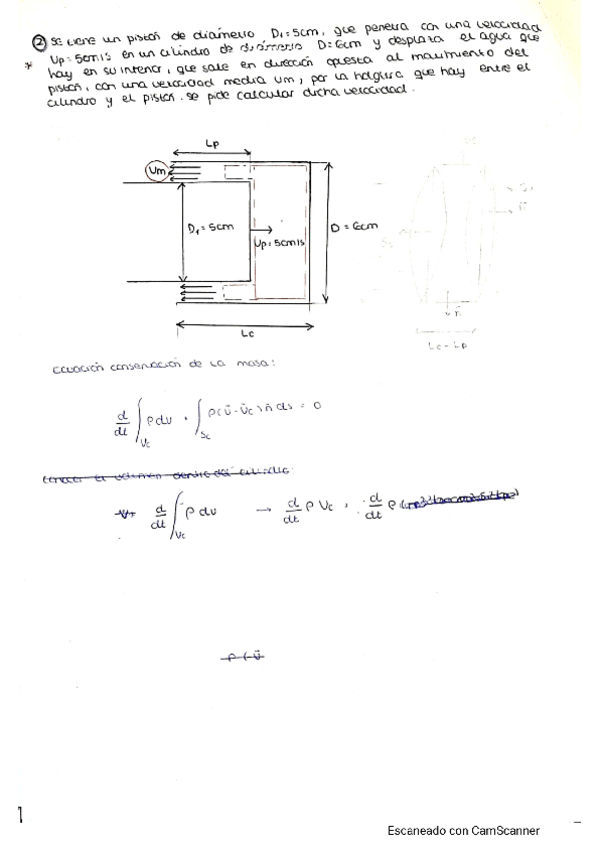 ② Se tiene un pistón de diámetro D₁=5cm, que penetra con una velocidad
* Up=5cm/s en un cilindro de diámetro D=6cm y desplaza el agua que
hay en su interior, que sale en dirección opuesta al movimiento del
pistón, con una velocidad media Um, por la holgura que hay entre el
cilindro y el pistón. se pide calcular dicha velocidad.
Lp
Um
D₁=5cm
Up=5cm/s
D=6cm
Lc
Lc-Lp
ecuación conservación de la masa:
d/dt ∫Vc ρdv + ∫Sc ρ(ū-ūc)n̄ds = 0
d/dt ∫Vc ρdv → d/dt ρVc, d/dt ρ
ρ(ū
1
Escaneado con CamScanner